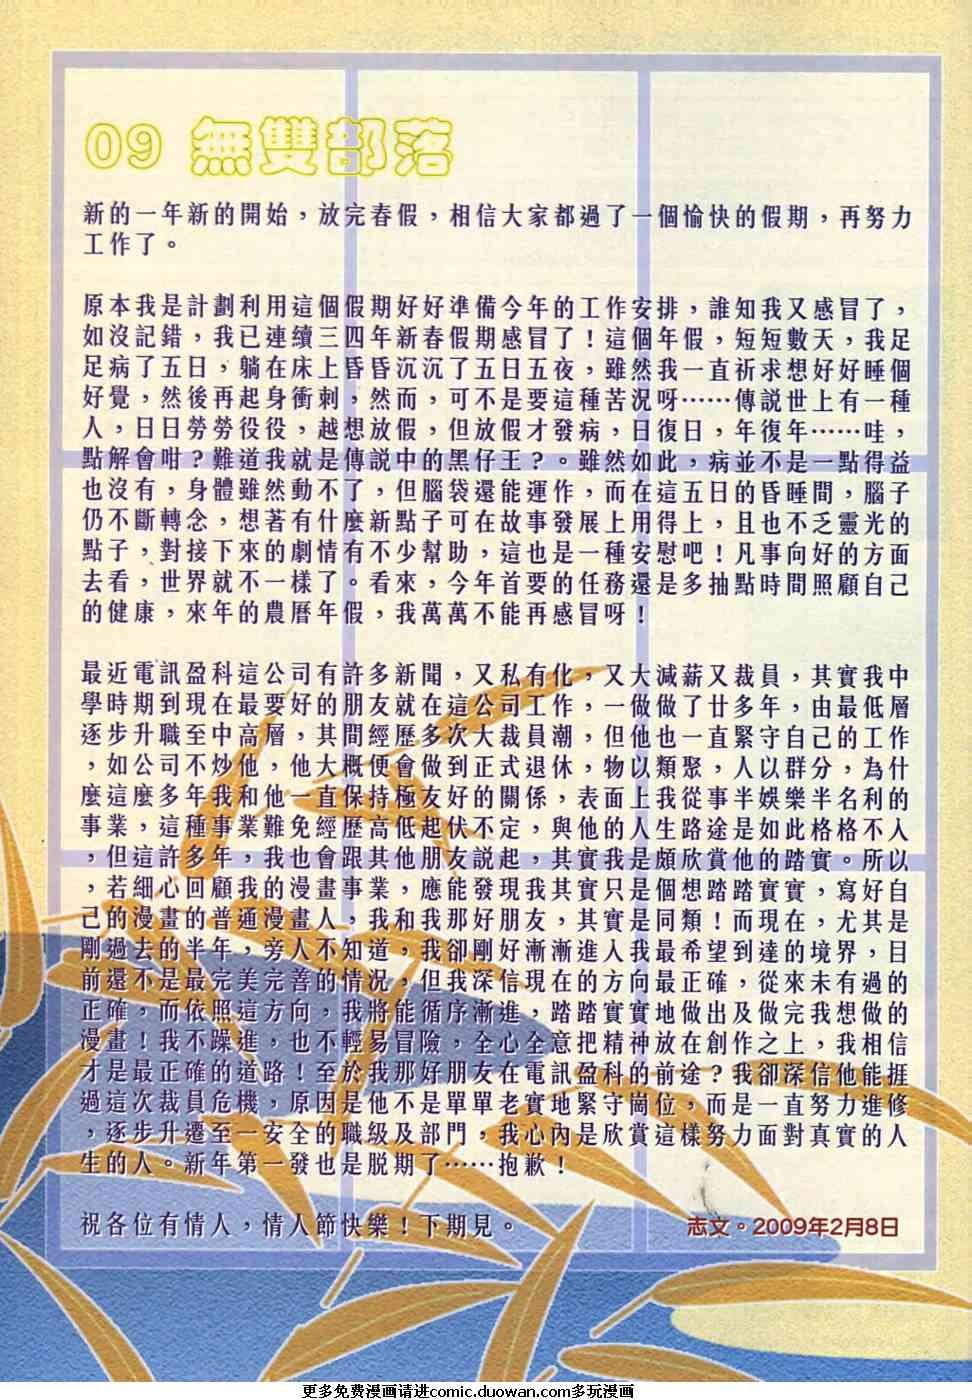 09 無雙部落
新的一年新的開始，放完春假，相信大家都過了一個愉快的假期，再努力
工作了。
原本我是計劃利用這個假期好好準備今年的工作安排，誰知我又感冒了，
如沒記錯，我已連續三四年新春假期感冒了！這個年假，短短數天，我足
足病了五日，躺在床上昏昏沉沉了五日五夜，雖然我一直祈求想好好睡個
好覺，然後再起身衝刺，然而，可不是要這種苦況呀……傳説世上有一種
人，日日勞勞役役，越想放假，但放假才發病，日復日，年復年……哇，
點解會咁？難道我就是傳説中的黑仔王？。雖然如此，病並不是一點得益
也沒有，身體雖然動不了，但腦袋還能運作，而在這五日的昏睡間，腦子
仍不斷轉念，想著有什麼新點子可在故事發展上用得上，且也不乏靈光的
點子，對接下來的劇情有不少幫助，這也是一種安慰吧！凡事向好的方面
去看，世界就不一樣了。看來，今年首要的任務還是多抽點時間照顧自己
的健康，來年的農曆年假，我萬萬不能再感冒呀！
最近電訊盈科這公司有許多新聞，又私有化，又大減薪又裁員，其實我中
學時期到現在最要好的朋友就在這公司工作，一做做了廿多年，由最低層
逐步升職至中高層，其間經歷多次大裁員潮，但他也一直緊守自己的工作
，如公司不炒他，他大概便會做到正式退休，物以類聚，人以群分，為什
麼這麼多年我和他一直保持極友好的關係，表面上我從事半娛樂半名利的
事業，這種事業難免經歷高低起伏不定，與他的人生路途是如此格格不入
，但這許多年，我也會跟其他朋友説起，其實我是頗欣賞他的踏實。所以
，若細心回顧我的漫畫事業，應能發現我其實只是個想踏踏實實，寫好自
己的漫畫的普通漫畫人，我和我那好朋友，其實是同類！而現在，尤其是
剛過去的半年，旁人不知道，我卻剛好漸漸進入我最希望到達的境界，目
前還不是最完美完善的情況，但我深信現在的方向最正確，從來未有過的
正確，而依照這方向，我將能循序漸進，踏踏實實地做出及做完我想做的
漫畫！我不躁進，也不輕易冒險，全心全意把精神放在創作之上，我相信
才是最正確的道路！至於我那好朋友在電訊盈科的前途？我卻深信他能捱
過這次裁員危機，原因是他不是單單老實地緊守崗位，而是一直努力進修
，逐步升遷至一安全的職級及部門，我心內是欣賞這樣努力面對真實的人
生的人。新年第一發也是脱期了……抱歉！
祝各位有情人，情人節快樂！下期見。
志文。2009年2月8日
更多免费漫画请进comic.duowan.com多玩漫画